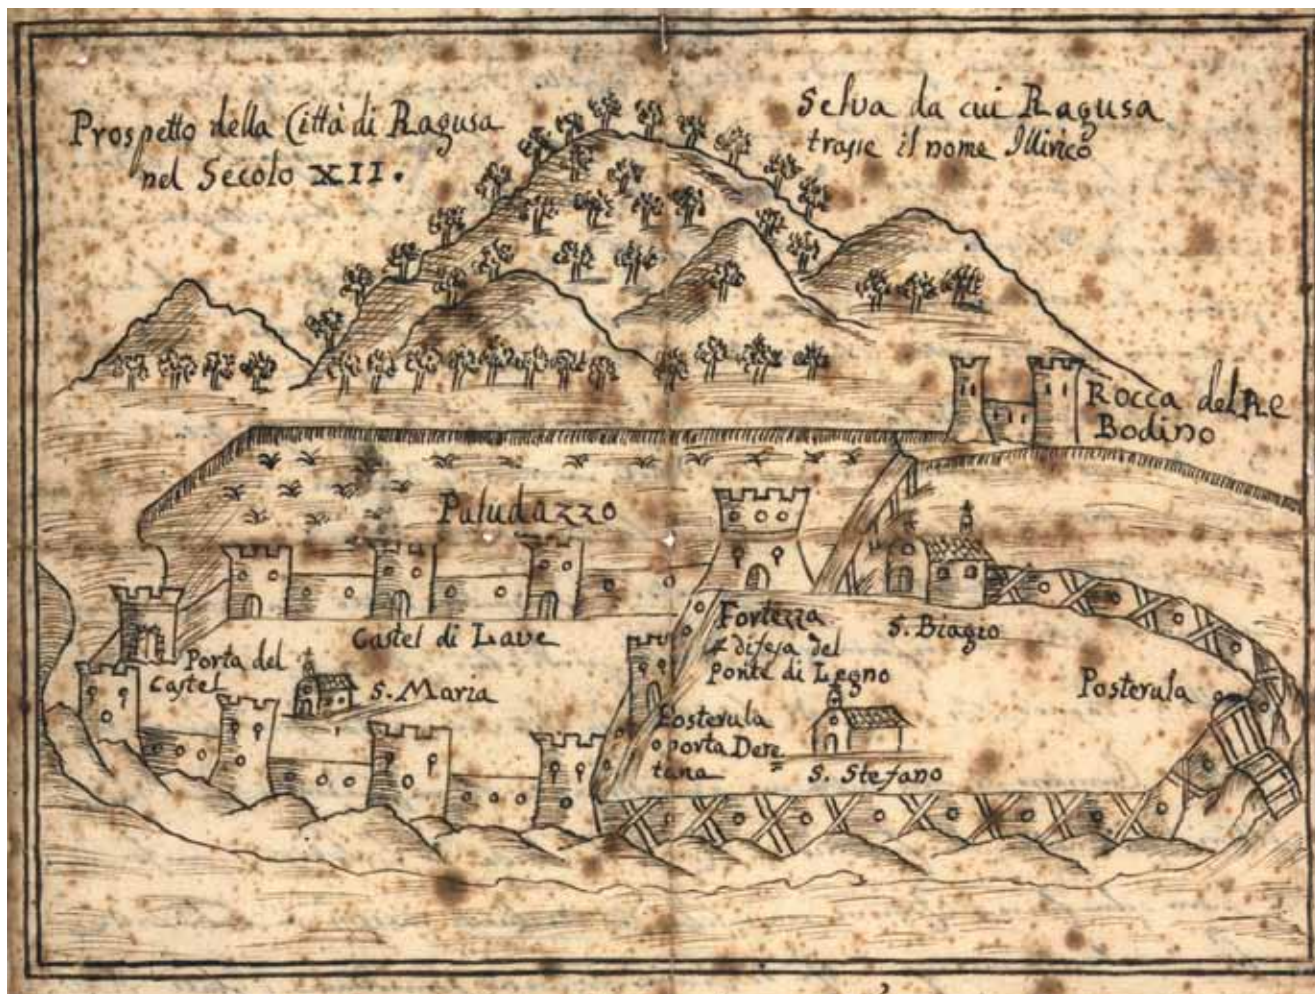 Prospetto della Città di Ragusa
nel Secolo XII.
Selva da cui Ragusa
trasse il nome Illirico
Rocca del Re
Bodino
Paludazzo
Castel di Lave
Fortezza
difesa del
ponte di Legno
S. Biagio
Porta del
Castel
S. Maria
Posterula
Posterula
o porta Dere=
tana
S. Stefano